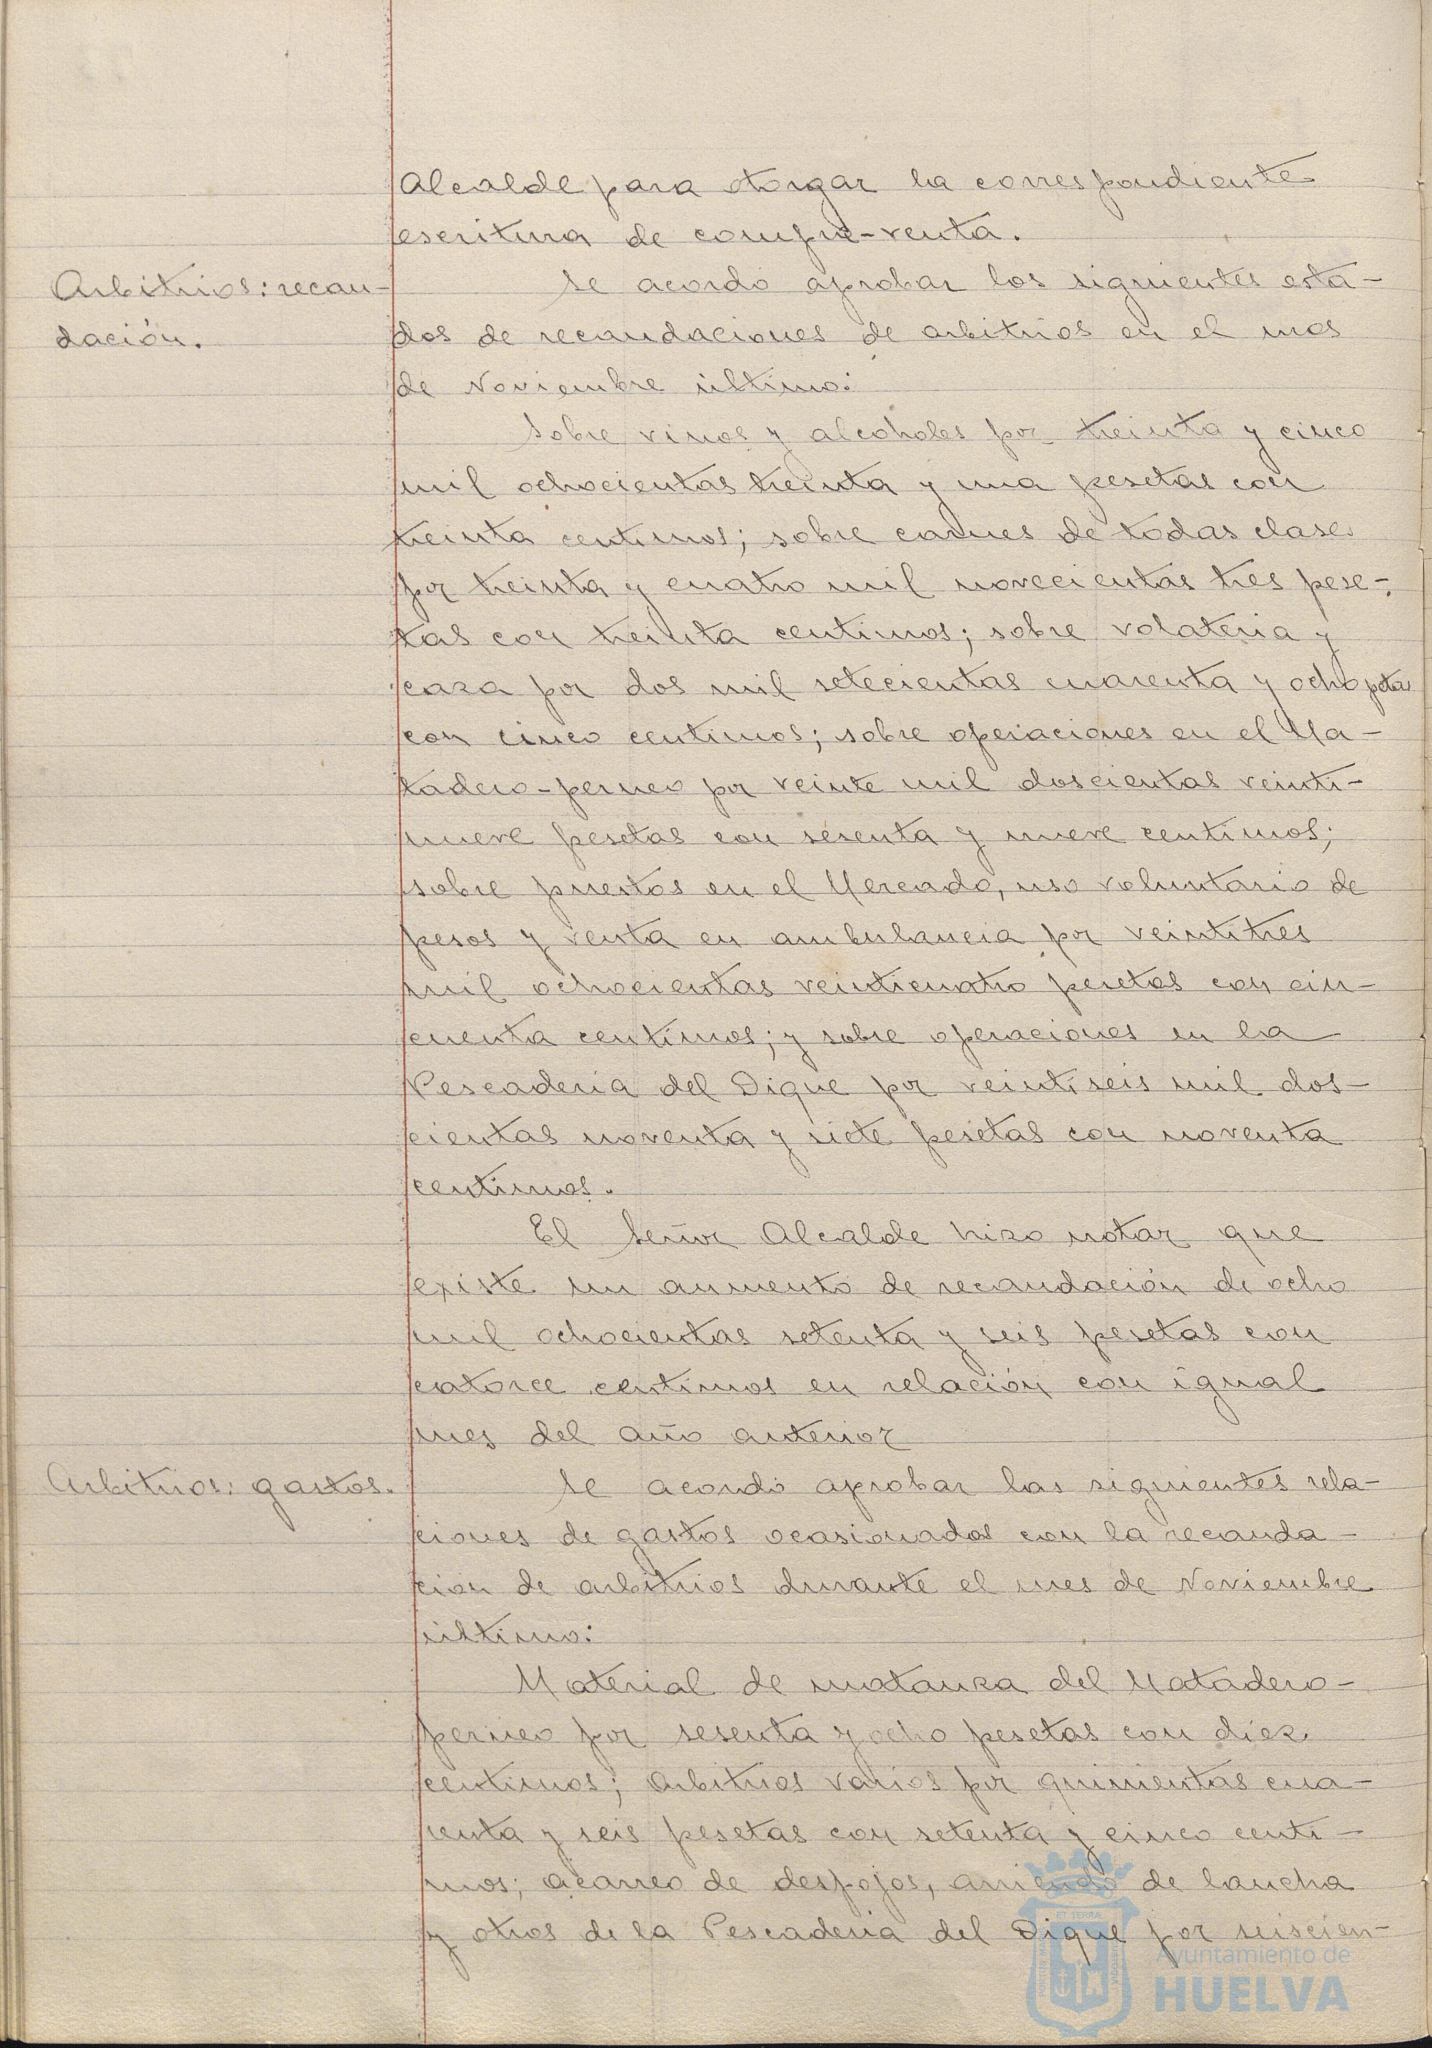 Alcalde para otorgar la correspondiente
escritura de compra-venta.
Arbitrios: recau-
dación.
Se acordó aprobar los siguientes esta-
dos de recaudaciones de arbitrios en el mes
de Noviembre último:
Sobre vinos y alcoholes por treinta y cinco
mil ochocientas treinta y una pesetas con
treinta centimos; sobre carnes de todas clases
por treinta y cuatro mil novecientas tres pese-
tas con treinta centimos; sobre volateria y
caza por dos mil setecientas cuarenta y ocho ptas
con cinco centimos; sobre operaciones en el Ma-
tadero-perneo por veinte mil doscientas veinti-
nueve pesetas con sesenta y nueve centimos;
sobre puestos en el Mercado, uso voluntario de
pesos y venta en ambulancia por veintitres
mil ochocientas veinticuatro pesetas con cin-
cuenta centimos; y sobre operaciones en la
Pescaderia del Dique por veintiseis mil dos-
cientas noventa y siete pesetas con noventa
centimos.
El Señor Alcalde hizo notar que
existe un aumento de recaudación de ocho
mil ochocientas setenta y seis pesetas con
catorce centimos en relación con igual
mes del año anterior
Arbitrios: gastos.
Se acordó aprobar las siguientes rela-
ciones de gastos ocasionados con la recauda-
ción de arbitrios durante el mes de Noviembre
último:
Material de matanza del Matadero-
perneo por sesenta y ocho pesetas con diez
centimos; arbitrios varios por quinientas cua-
renta y seis pesetas con setenta y cinco centi-
mos; acarreo de despojos, arriendo de lancha
y otros de la Pescaderia del Dique por seiscien-
Ayuntamiento de
HUELVA